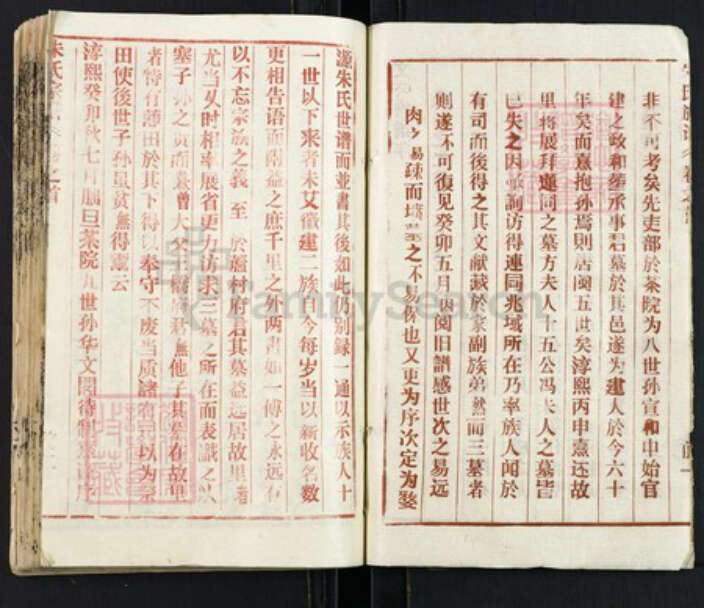 非不可考矣先吏部於茶院为八世孙宣和中始官
建之政和 承事君墓於其邑遂为建人於今六十
年矣而熹抱孙焉则居闽五世矣淳熙丙申熹还故
里将展拜 同之墓方夫人十五公冯夫人之墓皆
已失之因 询访得连同兆域所在乃率族人闻於
有司而後得之其文献藏於 副族弟然而三墓者
则遂不可復见癸卯五月因阅旧譜感世次之易远
肉之易疎而坟墓之不易保也又更为序次定为婺
源朱氏世谱而並書其後如此仍别録一通以示族人十
一世以下来者未艾徽建二族自今每岁当以新收名数
更相告语而附益之庶千里之外两書如一传之永远有
以不忘宗族之义至於 村府君其墓益远居故里者
尤当以时相率展省更力 求三墓之所在而表識之以
塞子孙之责而熹曾大父 府君無他子其墓在故里
者恃有薄田於其下得以奉守不废当质諸有司以为祭
田使後世子孙虽贫無得鬻云
淳熙癸卯秋七月 旦茶院九世孙华文閣待制熹序
朱氏宗 之首
FamilySearch